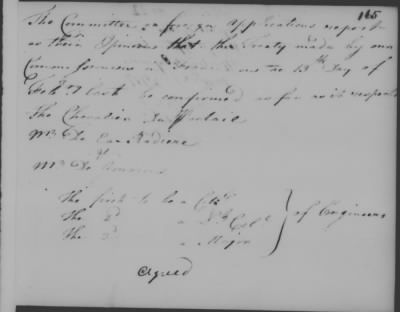 165
The Committee on foreign applications report
as their Opinion that the Treaty made by our
Commissioners in France on the 13th Day of
Feby last be confirmed as far as it respects
The Chevalier Du Portail
Mr De La Radiere
Mr De
The first to be a Coll
The 2d a Lt Coll
The 3d a Major
of Engineers
Agreed